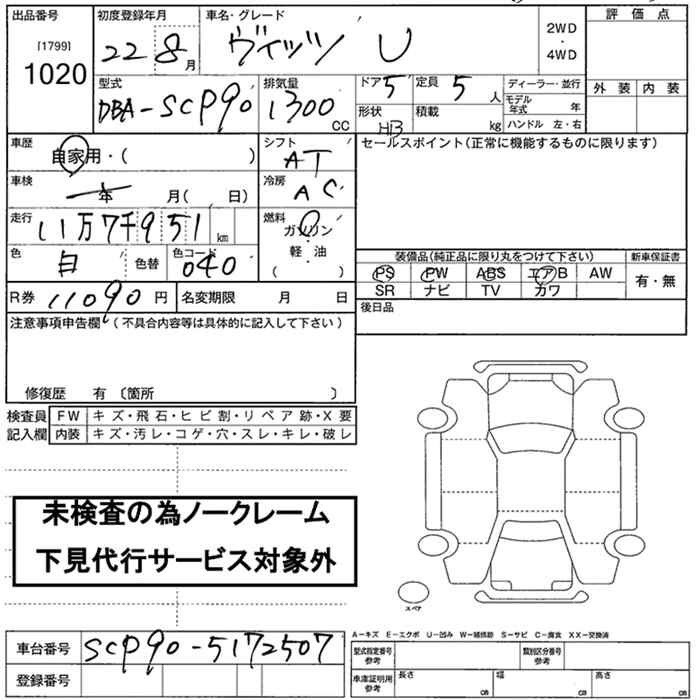 出品番号 初度登録年月 車名・グレード 評価点
[1799] 22 8月 ヴィッツ U 2WD
1020 ・
4WD
型式 排気量 ドア 5 定員 5人 ディーラー・並行 外装 内装
DBA-SCP90 1300 CC 形状 HB 積載 kg モデル年式 年
ハンドル 左・右
車歴 自家用・( ) シフト AT セールスポイント(正常に機能するものに限ります)
車検 年 月( 日) 冷房 AC
走行 11万7千951 km 燃料 ガソリン
軽・油
( )
色 白 色替 色コード 040 装備品(純正品に限り丸をつけて下さい) 新車保証書
PS PW ABS エアB AW 有・無
SR ナビ TV カワ
R券 11090円 名変期限 月 日 後日品
注意事項申告欄(不具合内容等は具体的に記入して下さい)
修復歴 有 〔箇所 〕
検査員 FW キズ・飛石・ヒビ割・リペア跡・X要
記入欄 内装 キズ・汚レ・コゲ・穴・スレ・キレ・破レ
未検査の為ノークレーム
下見代行サービス対象外
スペア
A-キズ E-エクボ U-凹み W-補修跡 S-サビ C-腐食 XX-交換済
車台番号 SCP90-5172507 型式指定番号 参考 類別区分番号 参考
登録番号 車庫証明用 参考 長さ cm 幅 cm 高さ cm